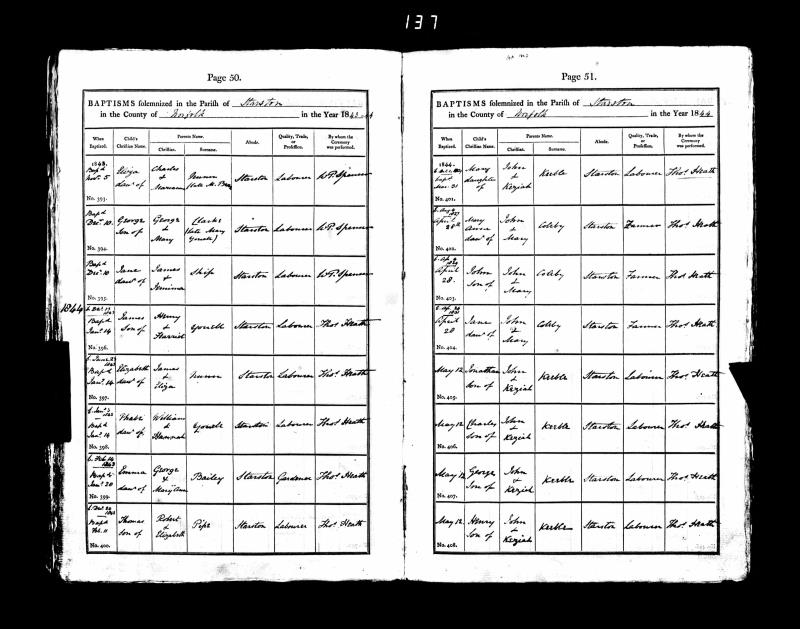 137
Page 50.
BAPTISMS solemnized in the Parish of Starston
in the County of Norfolk in the Year 1843-44
When Baptized.
Child's Christian Name.
Parents Name.
Christian.
Surname.
Abode.
Quality, Trade, or Profession.
By whom the Ceremony was performed.
1843. Bapd Novr 5
No. 393.
Eliza daur of
Charles & Hannah
Nunn
Starston
Labourer
W P Spencer
Bapd Decr 10.
No. 394.
George Son of
George & Mary
Clarke (late Mary
Starston
Labourer
W P Spencer
Bapd Decr 10
No. 395.
Jane daur of
James & Jemima
Skip
Starston
Labourer
W P Spencer
1844
b. Decr 1843 Bapd Janr 14
No. 396.
James Son of
Henry & Harriet
Gowell
Starston
Labourer
Thos Heath
b. June 1843 Bapd Janr 14
No. 397.
Elizabeth daur of
James & Eliza
Nunn
Starston
Labourer
Thos Heath
Bapd Janr 14
No. 398.
Phabe daur of
William & Hannah
Gowell
Starston
Labourer
Thos Heath
b. Feb 14 1843 Bapd Janr 28
No. 399.
Emma daur of
George & Mary Ann
Bailey
Starston
Gardener
Thos Heath
b. Decr 1843 Bapd Feb. 11
No. 400.
Thomas Son of
Robert & Elizabeth
Pipe
Starston
Labourer
Thos Heath
Page 51.
BAPTISMS solemnized in the Parish of Starston
in the County of Norfolk in the Year 1844
When Baptized.
Child's Christian Name.
Parents Name.
Christian.
Surname.
Abode.
Quality, Trade, or Profession.
By whom the Ceremony was performed.
1844. Bapd Mar. 31
No. 401.
Mary daughter of
John & Keziah
Kerble
Starston
Labourer
Thos Heath
b. Aug 1827 April 28th
No. 402.
Mary Anne daur of
John & Mary
Colby
Starston
Farmer
Thos Heath
1829 April 28.
No. 403.
John Son of
John & Mary
Colby
Starston
Farmer
Thos Heath
April 28
No. 404.
Jane daur of
John & Mary
Colby
Starston
Farmer
Thos Heath
May 12
No. 405.
Jonathan Son of
John & Keziah
Kerble
Starston
Labourer
Thos Heath
May 12
No. 406.
Charles Son of
John & Keziah
Kerble
Starston
Labourer
Thos Heath
May 12
No. 407.
George Son of
John & Keziah
Kerble
Starston
Labourer
Thos Heath
May 12
No. 408.
Henry Son of
John & Keziah
Kerble
Starston
Labourer
Thos Heath